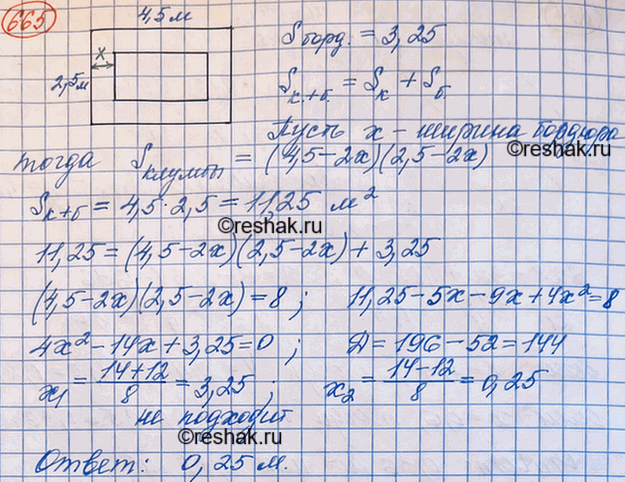 665
4,5 м
x
2,5 м
S борд. = 3,25
S к.+б. = S к + S б.
Пусть x – ширина бордюра
©reshak.ru
тогда S клумбы = (4,5–2x)(2,5–2x)
S к+б = 4,5·2,5 = 11,25 м²
©reshak.ru
11,25 = (4,5–2x)(2,5–2x) + 3,25
(4,5–2x)(2,5–2x) = 8 ; 11,25–5x–9x+4x²=8
4x²–14x+3,25=0 ; Д = 196–52 = 144
x₁ = (14+12)/8 = 3,25 ; x₂ = (14–12)/8 = 0,25
не подходит
©reshak.ru
Ответ: 0,25 м.